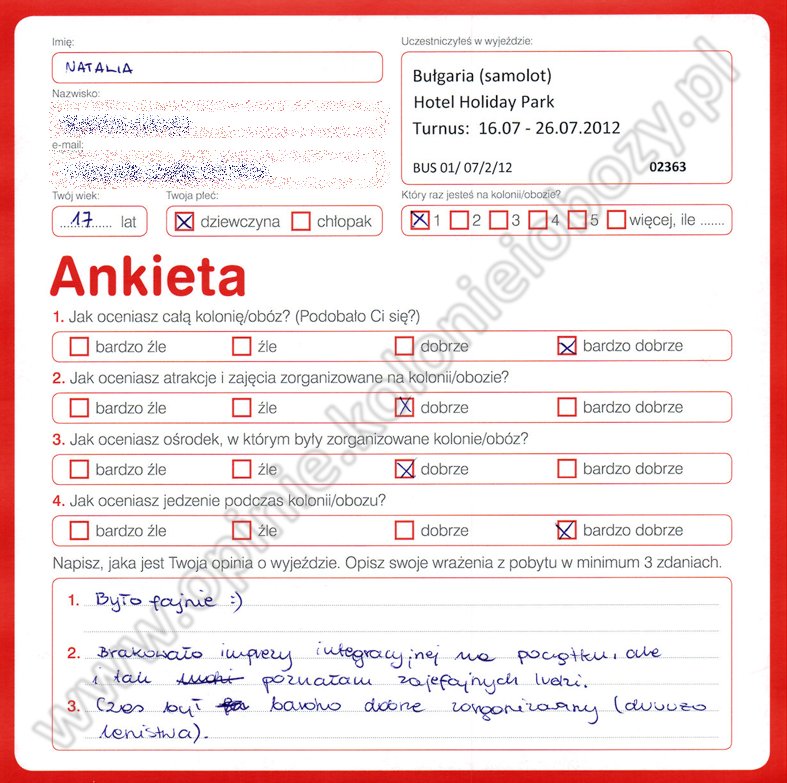 Imię:
NATALIA
Nazwisko:
e-mail:
Twój wiek:
17 lat
Twoja płeć:
dziewczyna chłopak
Uczestniczyłeś w wyjeździe:
Bułgaria (samolot)
Hotel Holiday Park
Turnus: 16.07 - 26.07.2012
BUS 01/ 07/2/12 02363
Który raz jesteś na kolonii/obozie?
1 2 3 4 5 więcej, ile .......
Ankieta
1. Jak oceniasz całą kolonię/obóz? (Podobało Ci się?)
bardzo źle źle dobrze bardzo dobrze
2. Jak oceniasz atrakcje i zajęcia zorganizowane na kolonii/obozie?
bardzo źle źle dobrze bardzo dobrze
3. Jak oceniasz ośrodek, w którym były zorganizowane kolonie/obóz?
bardzo źle źle dobrze bardzo dobrze
4. Jak oceniasz jedzenie podczas kolonii/obozu?
bardzo źle źle dobrze bardzo dobrze
Napisz, jaka jest Twoja opinia o wyjeździe. Opisz swoje wrażenia z pobytu w minimum 3 zdaniach.
1. Było fajnie :)
2. Brakowało imprezy integracyjnej na początku, ale
i tak poznałam zajefajnych ludzi.
3. Czas był bardzo dobrze zorganizowany (duuużo
lenistwa).
www.opinie.kolonieiobozy.pl